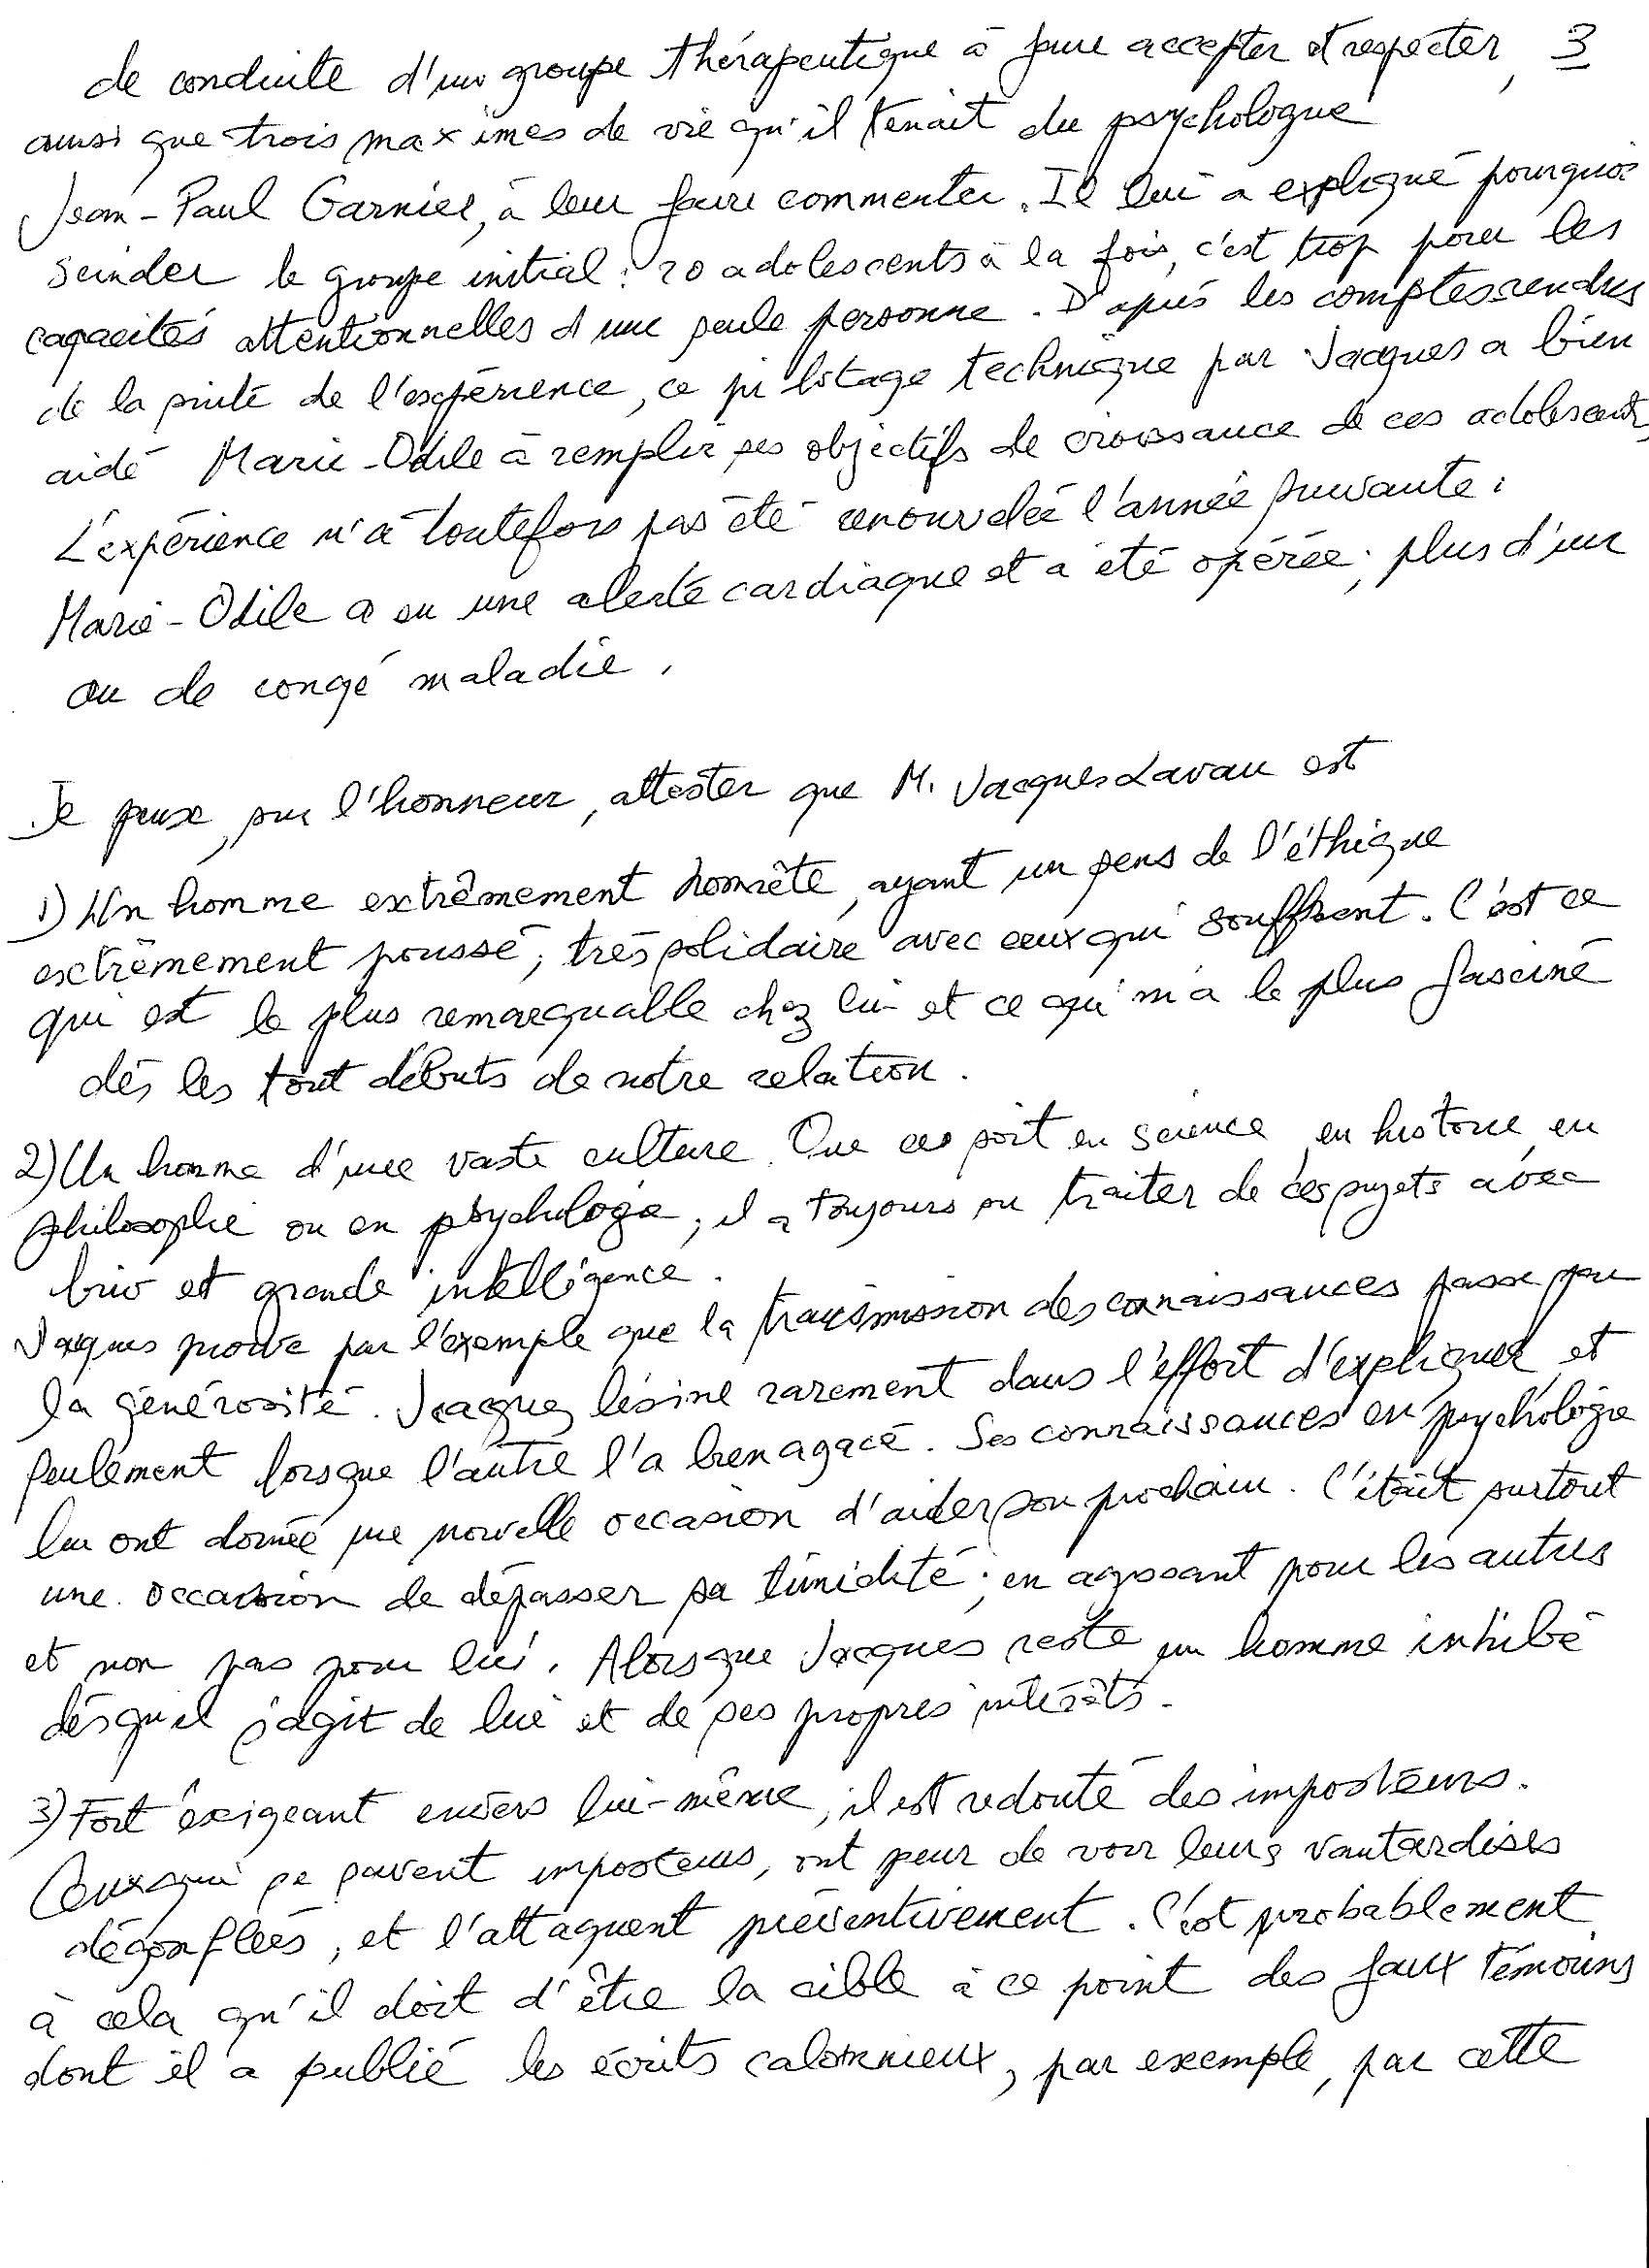 de conduite d'un groupe thérapeutique à faire accepter et respecter, 3
ainsi que trois maximes de vie qu'il tenait du psychologue
Jean-Paul Garnier, à leur faire commenter. Il lui a expliqué pourquoi
scinder le groupe initial : 20 adolescents à la fois, c'est trop pour les
capacités attentionnelles d'une seule personne. D'après les comptes-rendus
de la suite de l'expérience, ce pilotage technique par Jacques a bien
aidé Marie-Odile à remplir ses objectifs de croissance de ces adolescents.
L'expérience n'a toutefois pas été renouvelée l'année suivante :
Marie-Odile a eu une alerte cardiaque et a été opérée ; plus d'un
an de congé maladie.
Je peux, sur l'honneur, attester que M. Jacques Lavau est
1) Un homme extrêmement honnête, ayant un sens de l'éthique
extrêmement poussé, très solidaire avec ceux qui souffrent. C'est ce
qui est le plus remarquable chez lui et ce qui m'a le plus fasciné
dès les tout débuts de notre relation.
2) Un homme d'une vaste culture. Que ce soit en science, en histoire, en
philosophie ou en psychologie, il a toujours su traiter de ces sujets avec
brio et grande intelligence.
Jacques prouve par l'exemple que la transmission des connaissances passe par
la générosité. Jacques lésine rarement dans l'effort d'expliquer, et
seulement lorsque l'autre l'a bien agacé. Ses connaissances en psychologie
lui ont donné une nouvelle occasion d'aider son prochain. C'était surtout
une occasion de dépasser sa timidité ; en agissant pour les autres
et non pas pour lui. Alors que Jacques reste un homme inhibé
dès qu'il s'agit de lui et de ses propres intérêts.
3) Fort exigeant envers lui-même, il est redouté des imposteurs.
Ceux qui se savent imposteurs, ont peur de voir leurs vantardises
dégonflées, et l'attaquent préventivement. C'est probablement
à cela qu'il doit d'être la cible à ce point des faux témoins
dont il a publié les écrits calomnieux, par exemple, par cette